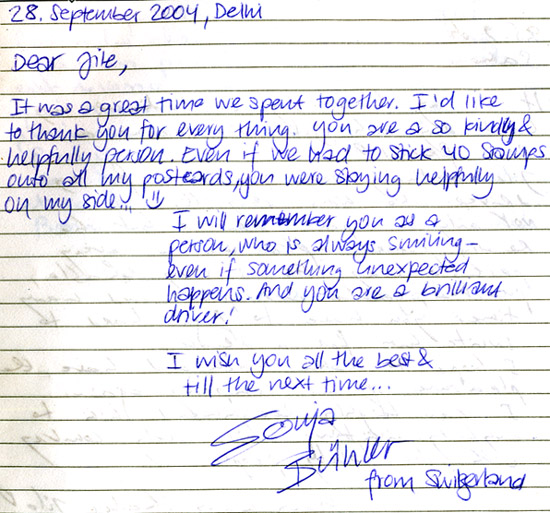 28. September 2004, Delhi
Dear Jile,
It was a great time we spent together. I'd like
to thank you for every thing. you are a so kindly &
helpfully person. Even if we had to stick 40 Stamps
onto all my postcards, you were staying helpfully
on my side...
I will remember you as a
person, who is always smiling –
even if something unexpected
happens. And you are a brilliant
driver!
I wish you all the best &
till the next time...
Sonja
from Switzerland